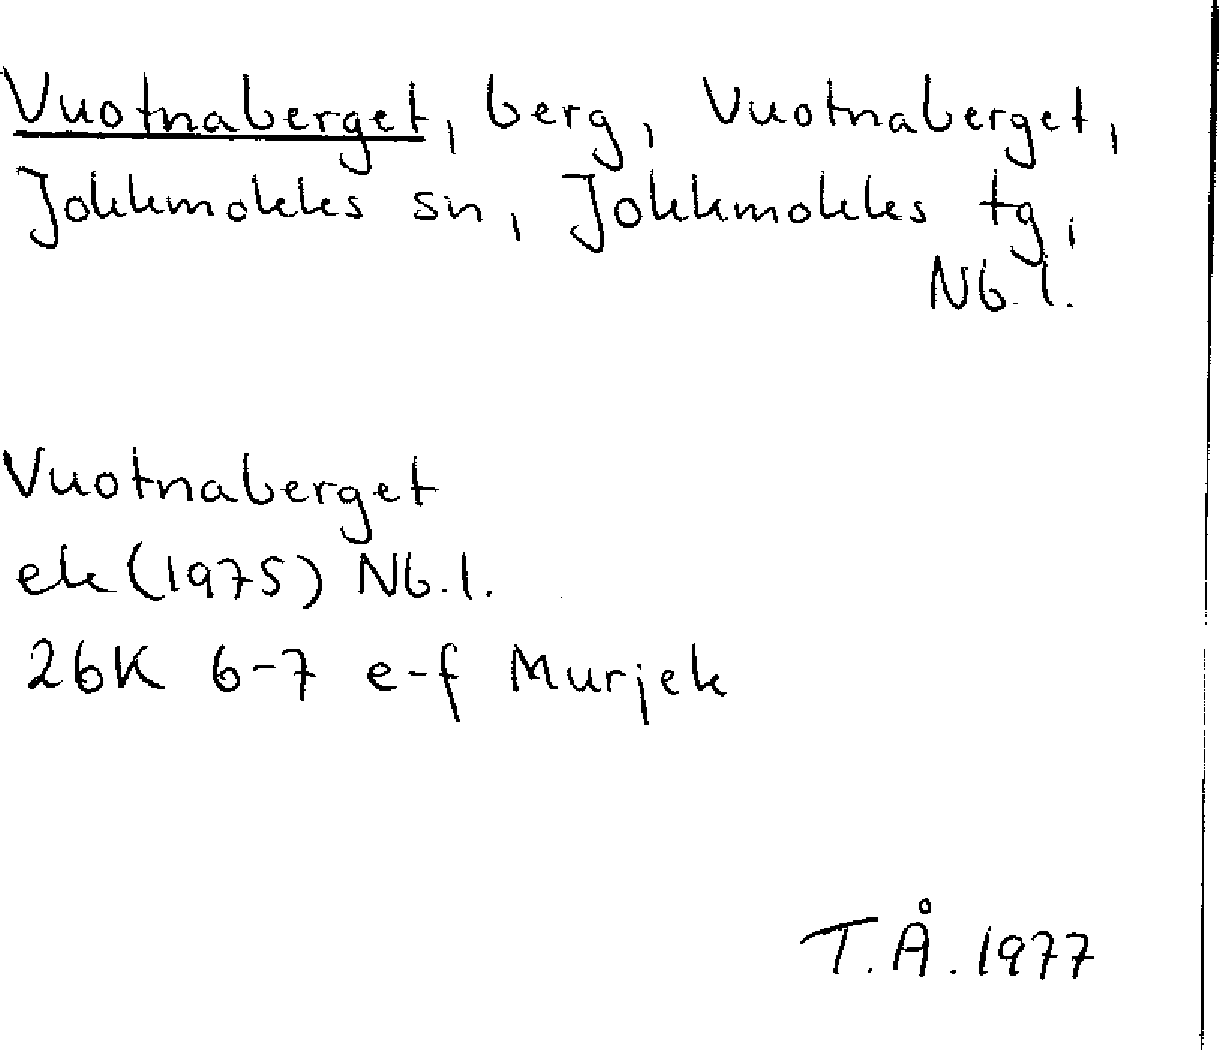 Vuotnaberget, berg, Vuotnaberget,
Jokkmokks sn, Jokkmokks tg,
Nb.l.
Vuotnaberget
ek (1975) Nb.l.
26K 6-7 e-f Murjek
T.Å. 1977